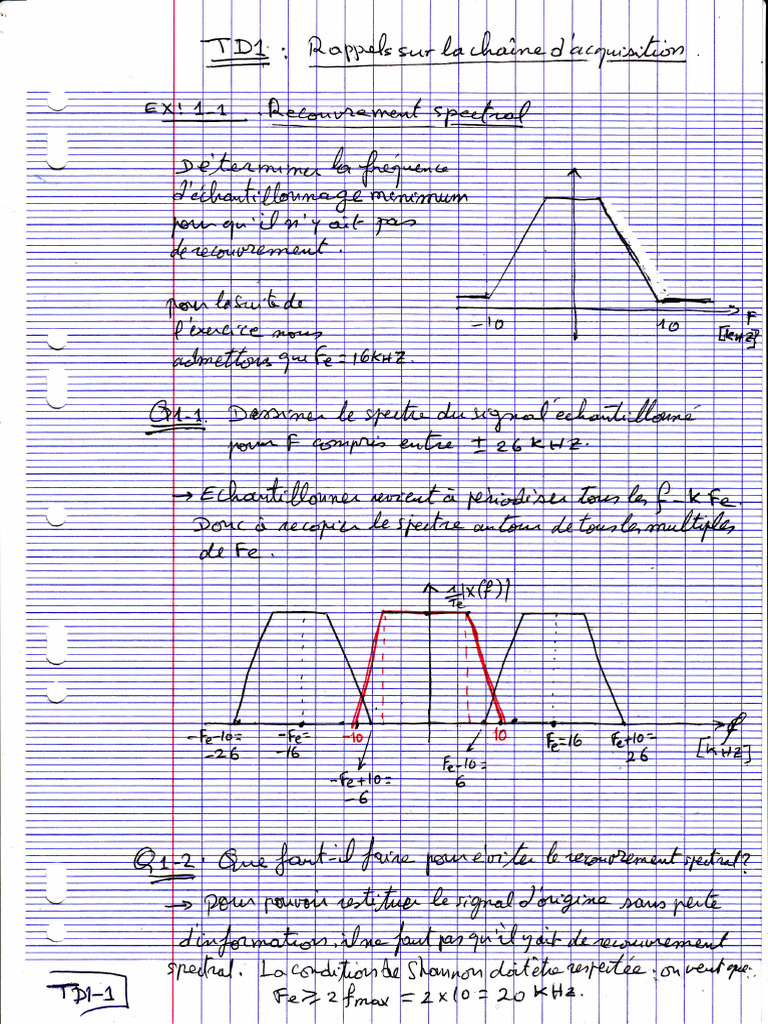 TD1 : Rappels sur la chaîne d'acquisition.
EX: 1-1 . Recouvrement spectral
Déterminer la fréquence
d'échantillonnage minimum
pour qu'il n'y ait pas
de recouvrement.
pour la suite de
l'exercice nous
admettons que Fe = 16 KHZ.
-10
10
F
[KHZ]
Q1-1. Dessiner le spectre du signal échantillonné
pour F compris entre ± 26 KHZ.
→ Echantillonner revient à périodiser tous les f - k Fe.
Donc à recopier le spectre autour de tous les multiples
de Fe.
1/Te |X(f)|
-Fe-10=
-26
-Fe=
-16
-10
-Fe+10=
-6
Fe-10=
6
10
Fe=16
Fe+10=
26
f
[KHZ]
Q1-2. Que faut-il faire pour éviter le recouvrement spectral?
→ pour pouvoir restituer le signal d'origine sans perte
d'informations, il ne faut pas qu'il y ait de recouvrement
spectral. La condition de Shannon doit être respectée : on veut que
Fe ⩾ 2 fmax = 2 × 10 = 20 KHZ.
TD1-1